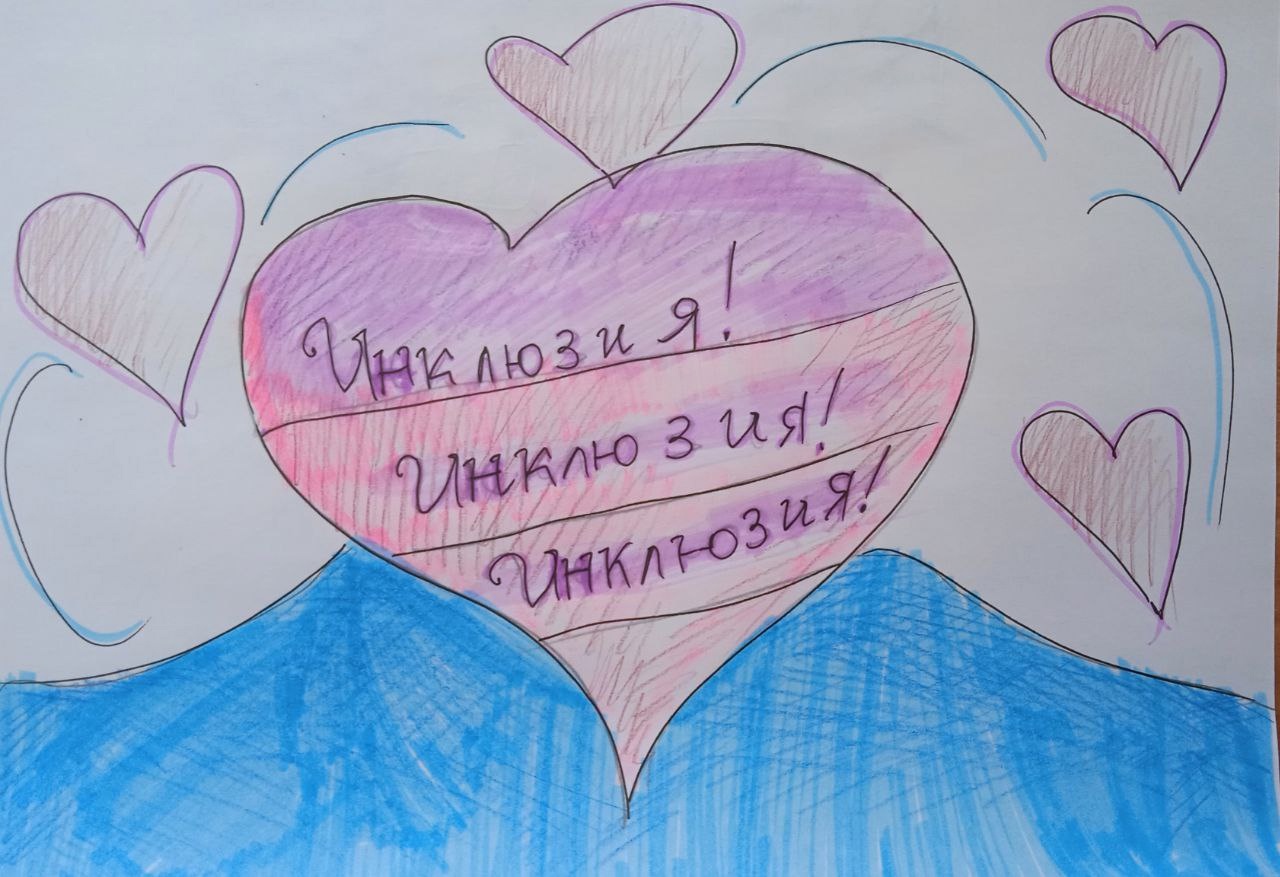 Инклюзия!
Инклюзия!
Инклюзия!